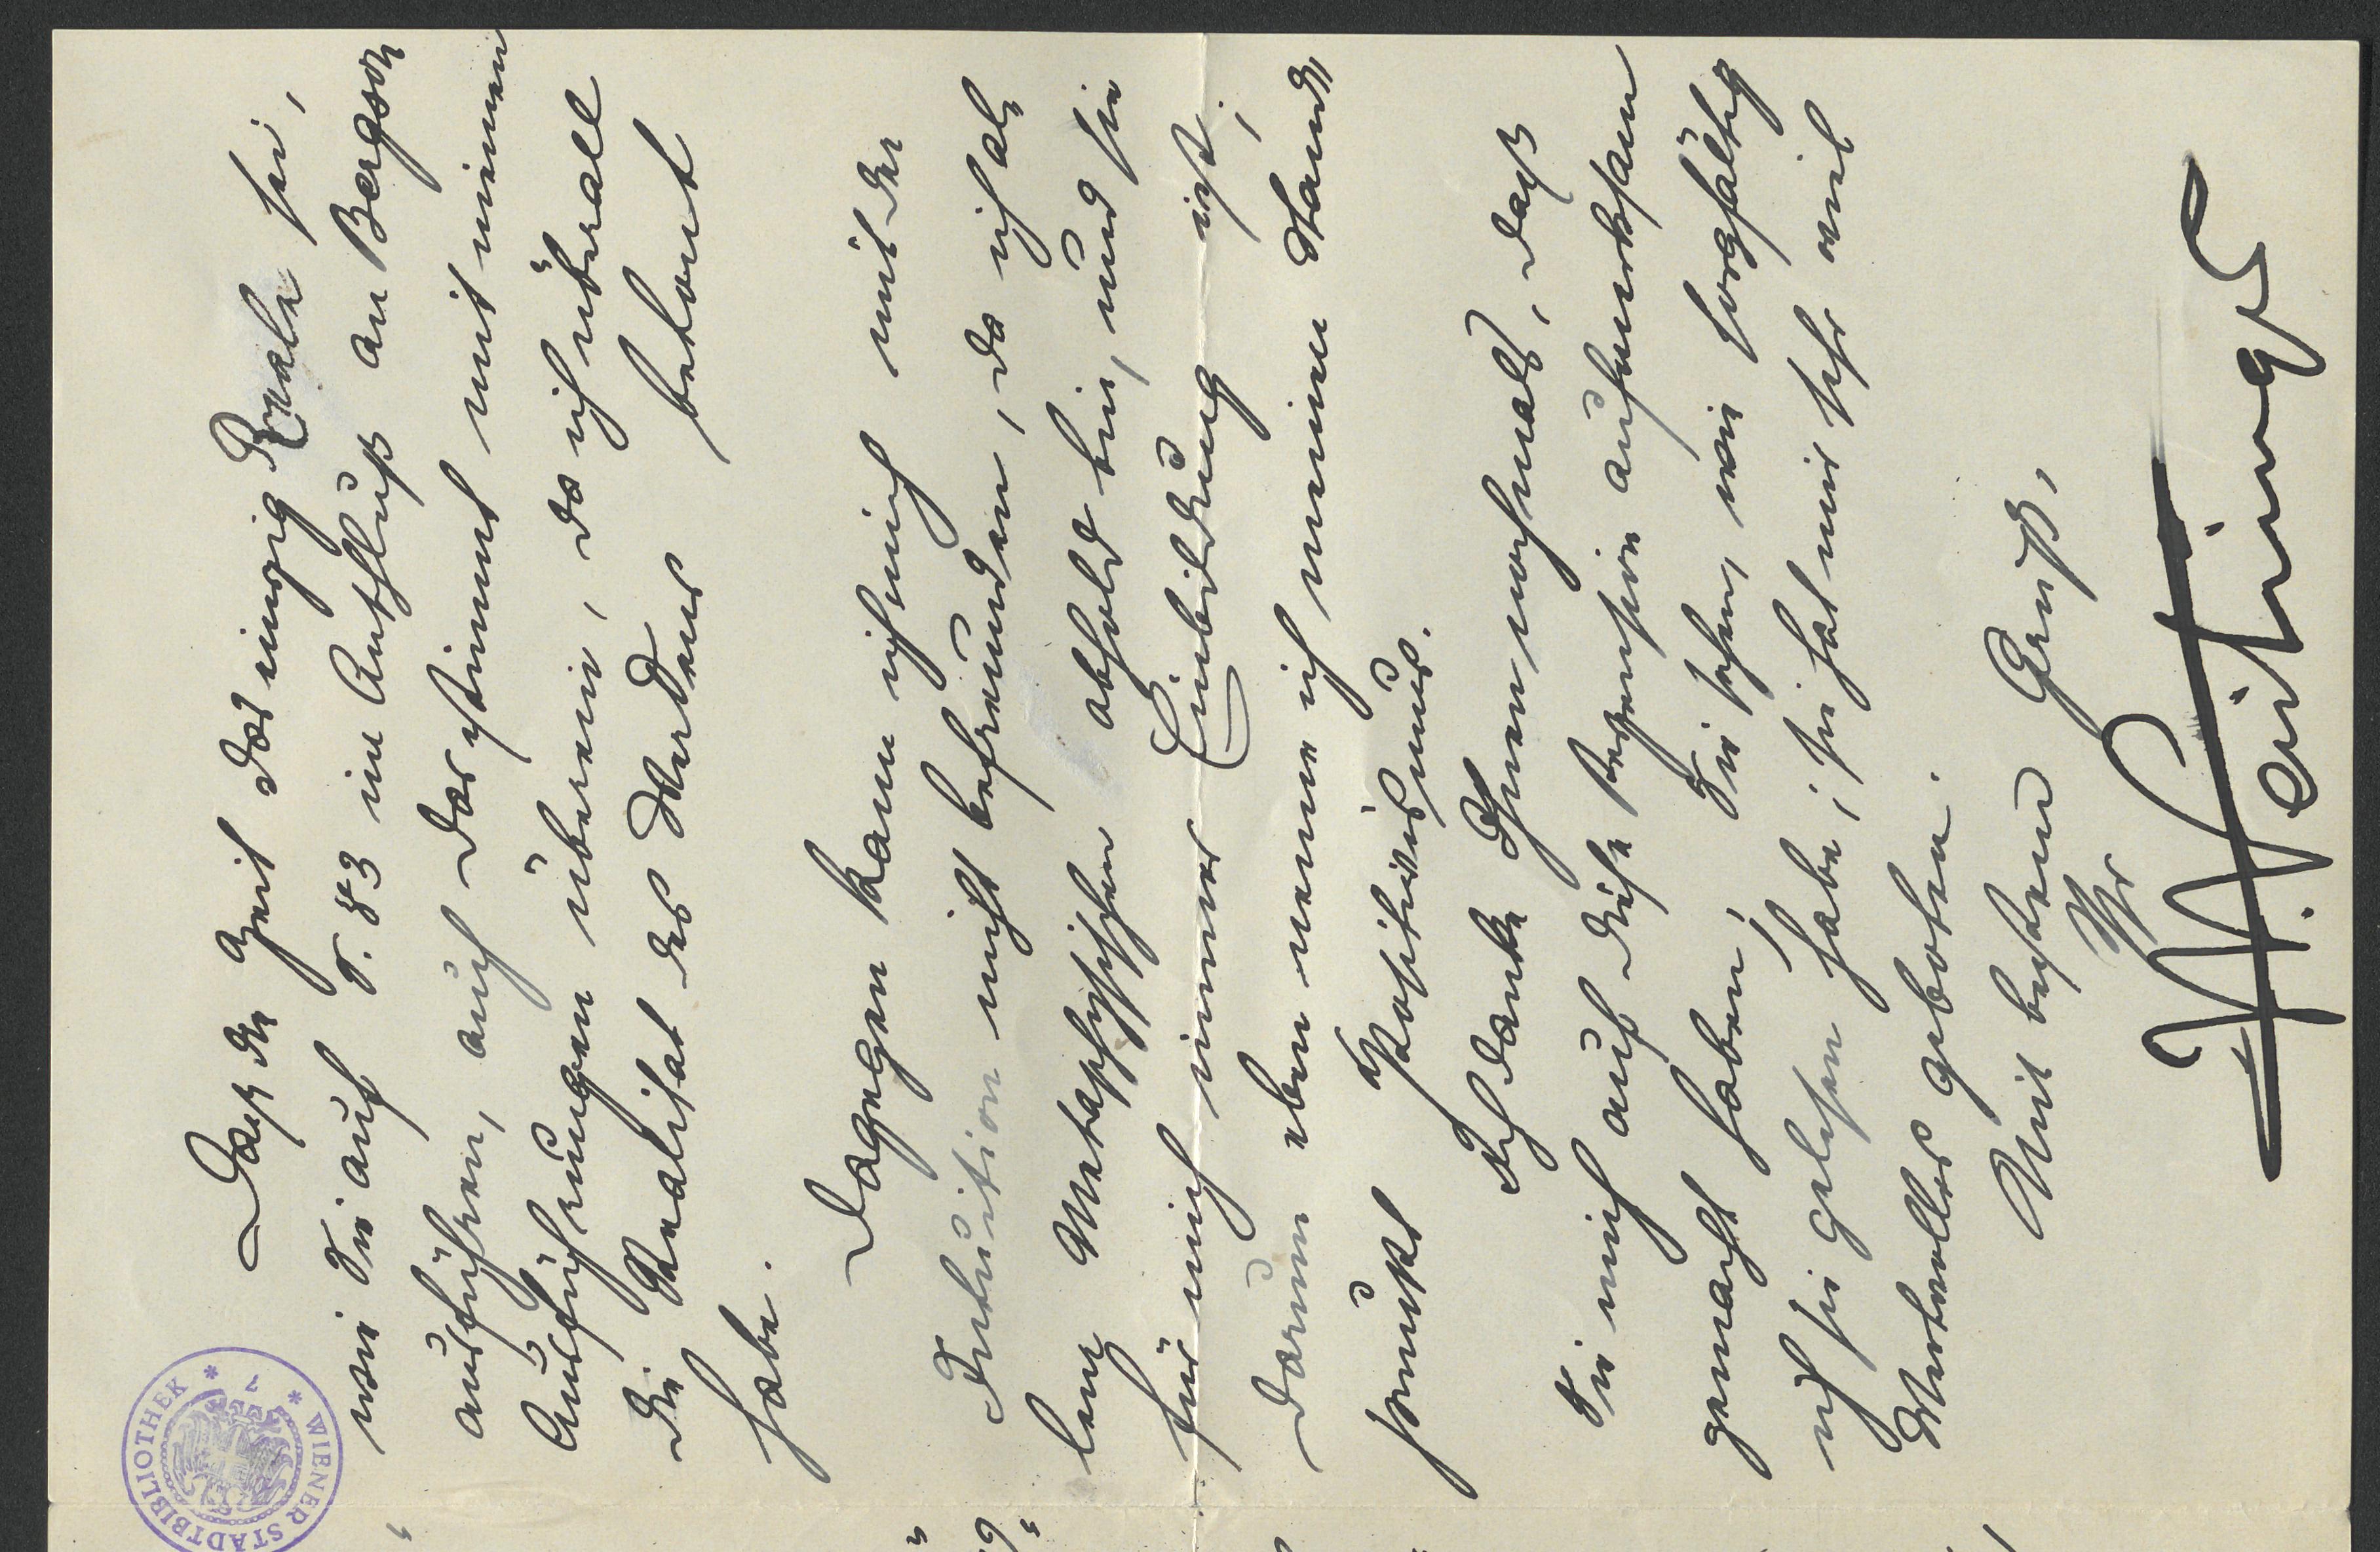 Daß die Zeit das einzig Reale sei,
wie Sie auf S. 83 im Anschluß an Bergson
ausführen, auch das stimmt mit meinen
Ausführungen überein, da ich überall
die Realität des Werdens betont
habe.
Dagegen kann ich mich mit der
Intuition nicht befreunden, da ich al-
lem Metaphysischen abhold bin, und sie
für mich immer Einbildung ist;
darum eben nenne ich meinen Stand-
punkt Positivismus.
Ich danke Ihnen nochmals, daß
Sie mich auf diese Rezension aufmerksam
gemacht haben; Sie sehen, wie sorgfältig
ich sie gelesen habe; sie hat mir sehr viel
Wertvolles geboten.
Mit bestem Gruß,
Ihr
WIENER STADTBIBLIOTHEK